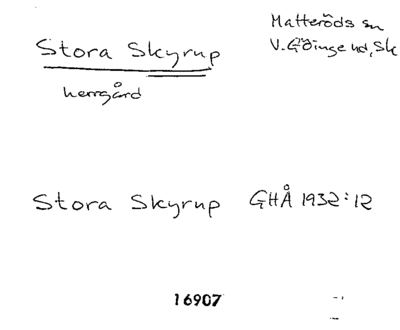 Stora Skyrup
herrgård
Matteröds sn
V. Göinge hd, Sk
Stora Skyrup GHÅ 1932:12
16907